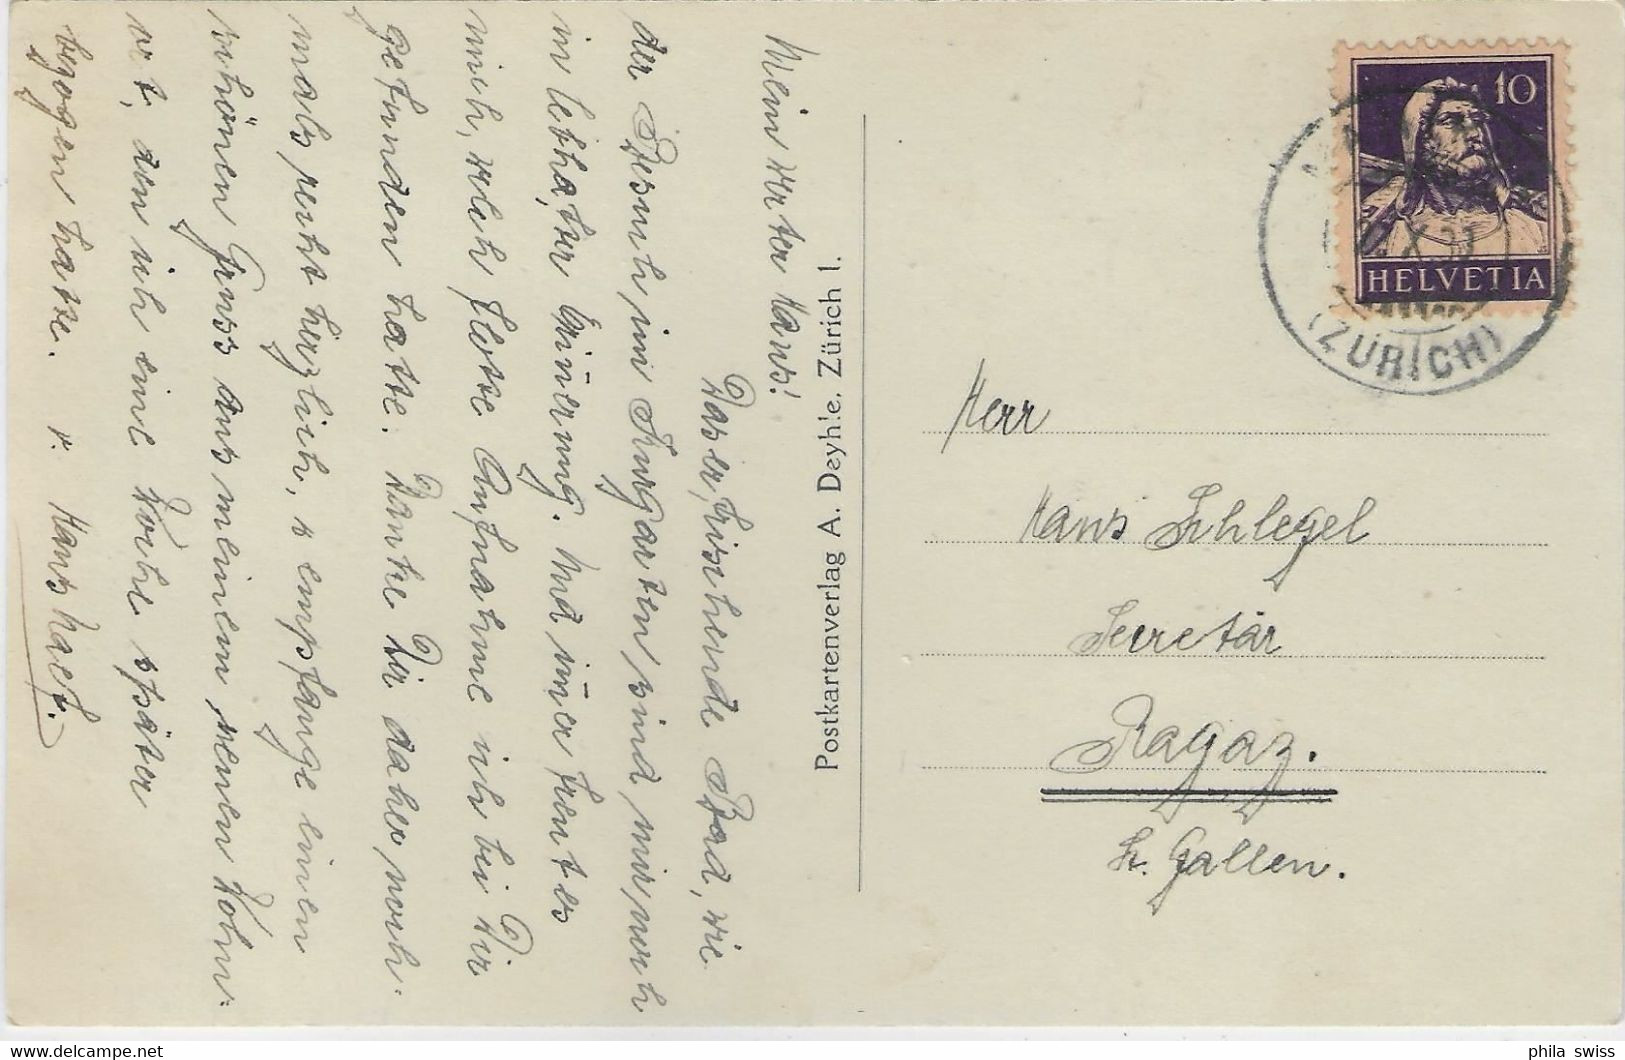 Mein werter Hans!
Das erfrischende Bad, wie
der Besuch im Kurgarten sind mir noch
in lebhafter Erin̄erung. Und im̄er freut es
mich, welch flotte Aufnahme ich bei Dir
gefunden hatte. Danke Dir daher noch-
mals recht herzlich, & empfange einen
schönen Gruss aus meinem neuen Wohn-
ort, den ich eine Woche später
bezogen hatte. v. Hans
Postkartenverlag A. Deyhle, Zürich I.
10
HELVETIA
(ZÜRICH)
Herr
Hans Schlegel
Secretär
Ragaz.
St. Gallen.
phila swiss